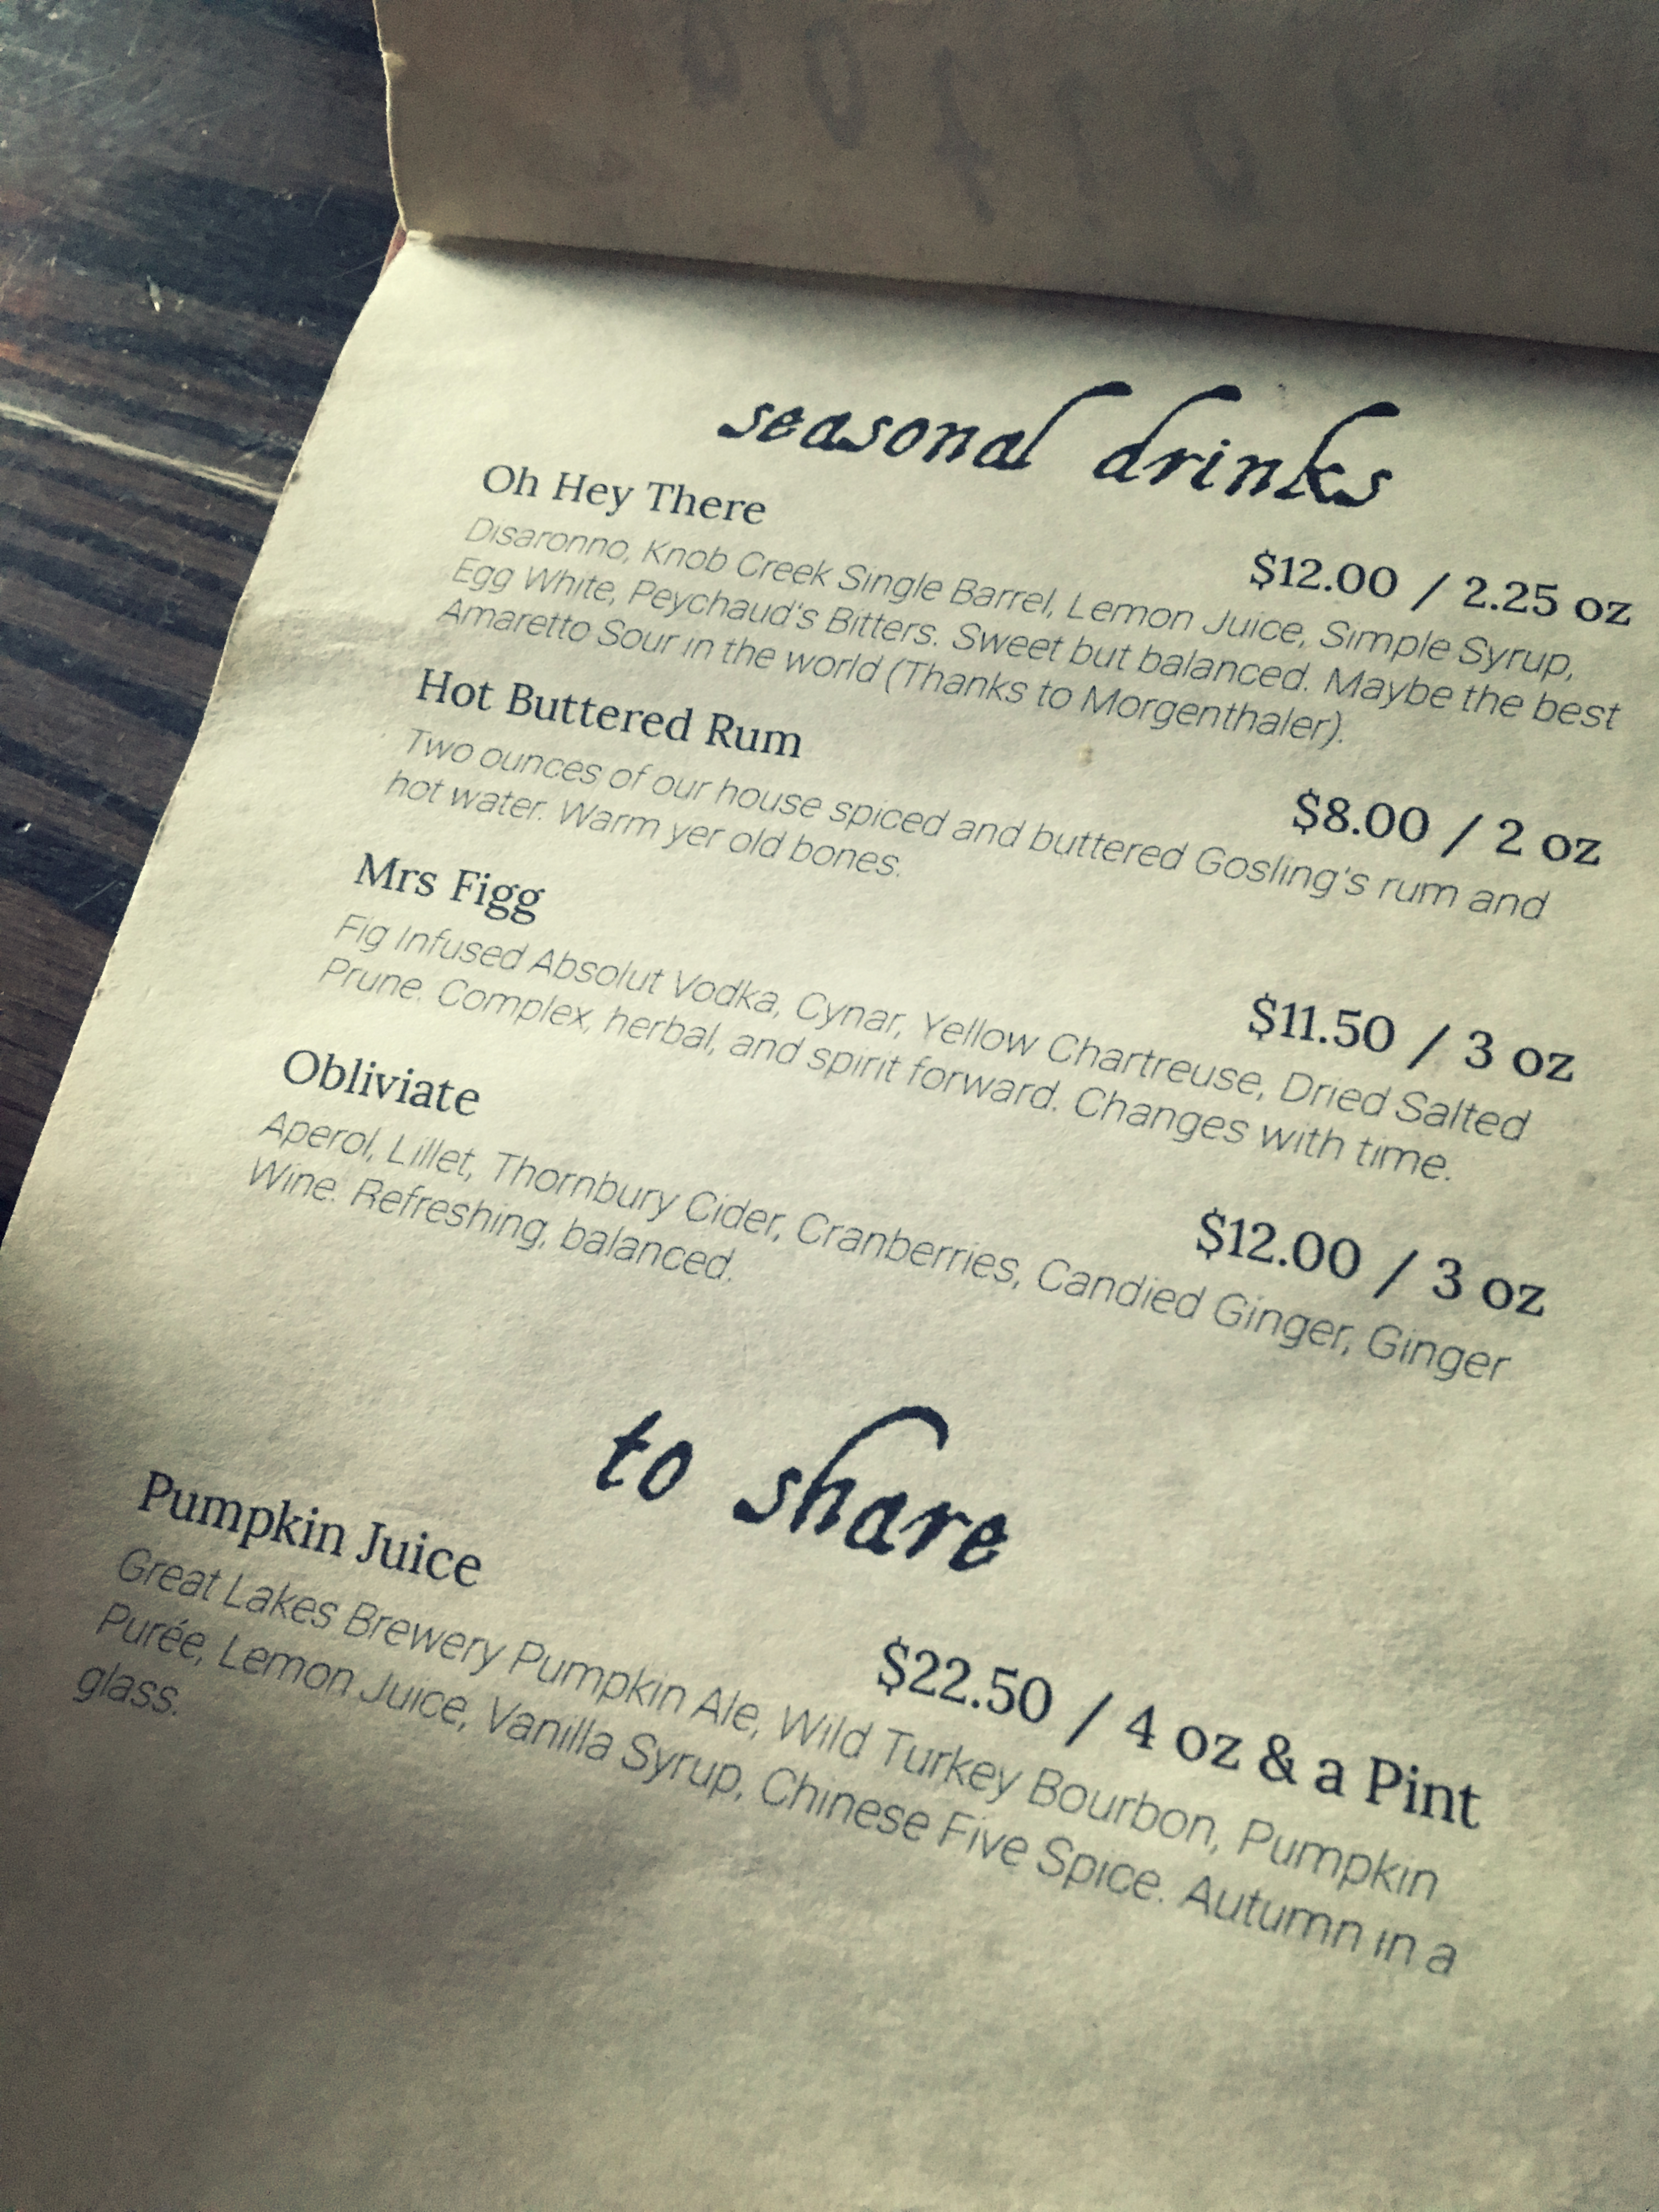 seasonal drinks
Oh Hey There
$12.00 / 2.25 oz
Disaronno, Knob Creek Single Barrel, Lemon Juice, Simple Syrup,
Egg White, Peychaud's Bitters. Sweet but balanced. Maybe the best
Amaretto Sour in the world (Thanks to Morgenthaler).
Hot Buttered Rum
$8.00 / 2 oz
Two ounces of our house spiced and buttered Gosling's rum and
hot water. Warm yer old bones.
Mrs Figg
$11.50 / 3 oz
Fig Infused Absolut Vodka, Cynar, Yellow Chartreuse, Dried Salted
Prune. Complex, herbal, and spirit forward. Changes with time.
Obliviate
$12.00 / 3 oz
Aperol, Lillet, Thornbury Cider, Cranberries, Candied Ginger, Ginger
Wine. Refreshing, balanced.
to share
Pumpkin Juice
$22.50 / 4 oz & a Pint
Great Lakes Brewery Pumpkin Ale, Wild Turkey Bourbon, Pumpkin
Purée, Lemon Juice, Vanilla Syrup, Chinese Five Spice. Autumn in a
glass.